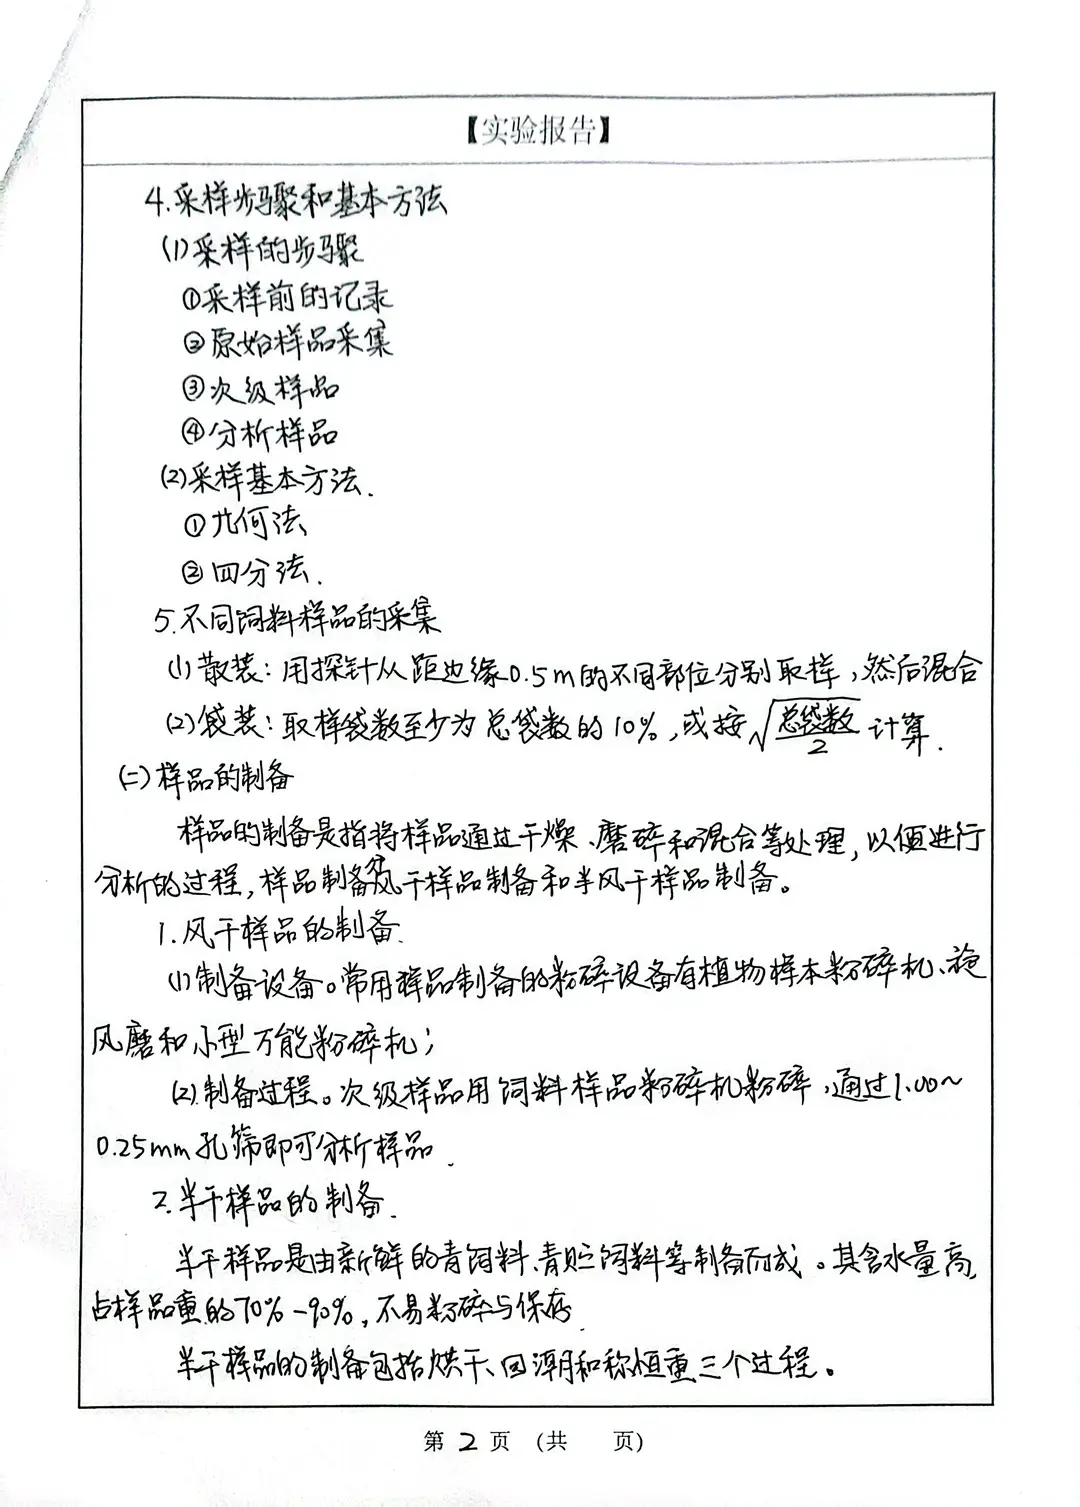 【实验报告】
4.采样步骤和基本方法
(1)采样的步骤
①采样前的记录
②原始样品采集
③次级样品
④分析样品
(2)采样基本方法.
①几何法
②四分法.
5.不同饲料样品的采集
(1)散装:用探针从距边缘0.5m的不同部位分别取样,然后混合
(2)袋装:取样袋数至少为总袋数的10%,或按√(总袋数/2)计算.
(二)样品的制备
样品的制备是指将样品通过干燥、磨碎和混合等处理,以便进行
分析的过程,样品制备分风干样品制备和半风干样品制备。
1.风干样品的制备.
(1)制备设备。常用样品制备的粉碎设备有植物样本粉碎机、旋
风磨和小型万能粉碎机;
(2).制备过程。次级样品用饲料样品粉碎机粉碎,通过1.00~
0.25mm孔筛即可分析样品.
2.半干样品的制备.
半干样品是由新鲜的青饲料、青贮饲料等制备而成。其含水量高,
占样品重的70%-90%,不易粉碎与保存.
半干样品的制备包括烘干、回潮和称恒重三个过程。
第2页(共 页)